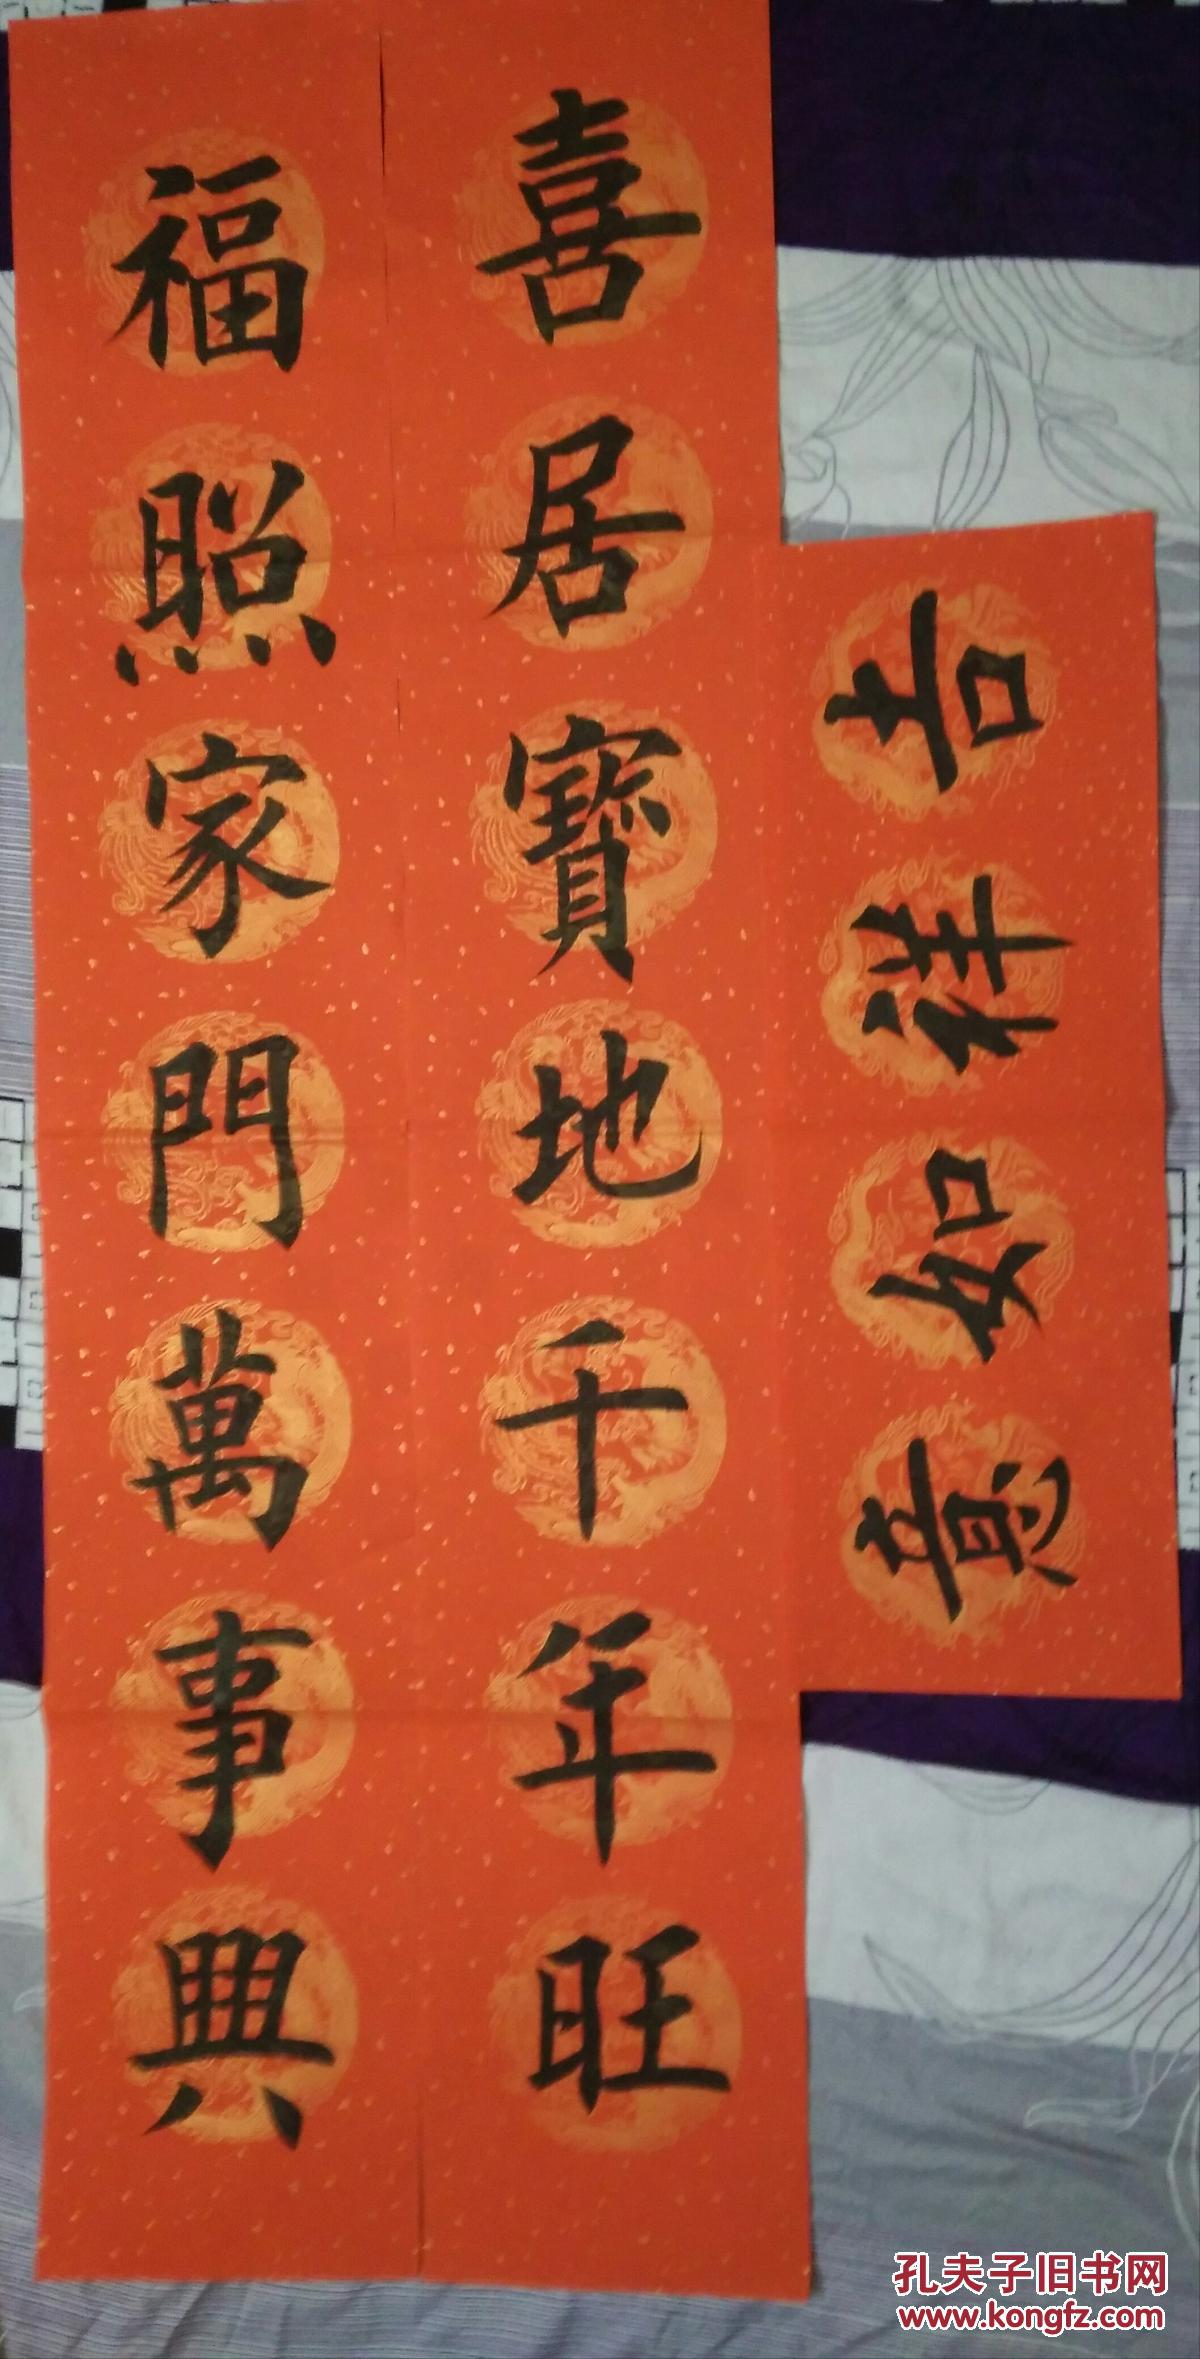 喜居寶地千年旺
福照家門萬事興
吉祥如意
孔夫子旧书网
www.kongfz.com